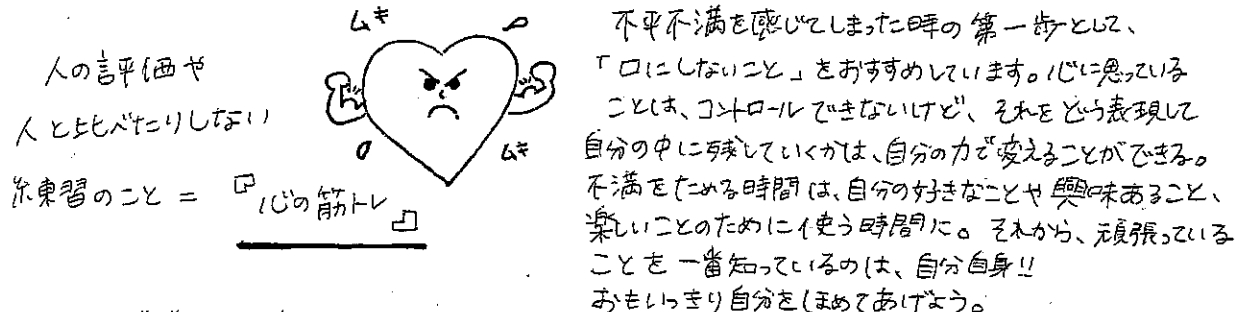 人の評価や
人と比べたりしない
練習のこと=『心の筋トレ』
ムキ
ムキ
不平不満を感じてしまった時の第一歩として、
「口にしないこと」をおすすめしています。心に思っている
ことは、コントロールできないけど、それをどう表現して
自分の中に残していくかは、自分の力で変えることができる。
不満をためる時間は、自分の好きなことや興味あること、
楽しいことのために使う時間に。それから、頑張っている
ことを一番知っているのは、自分自身!!
おもいっきり自分をほめてあげよう。